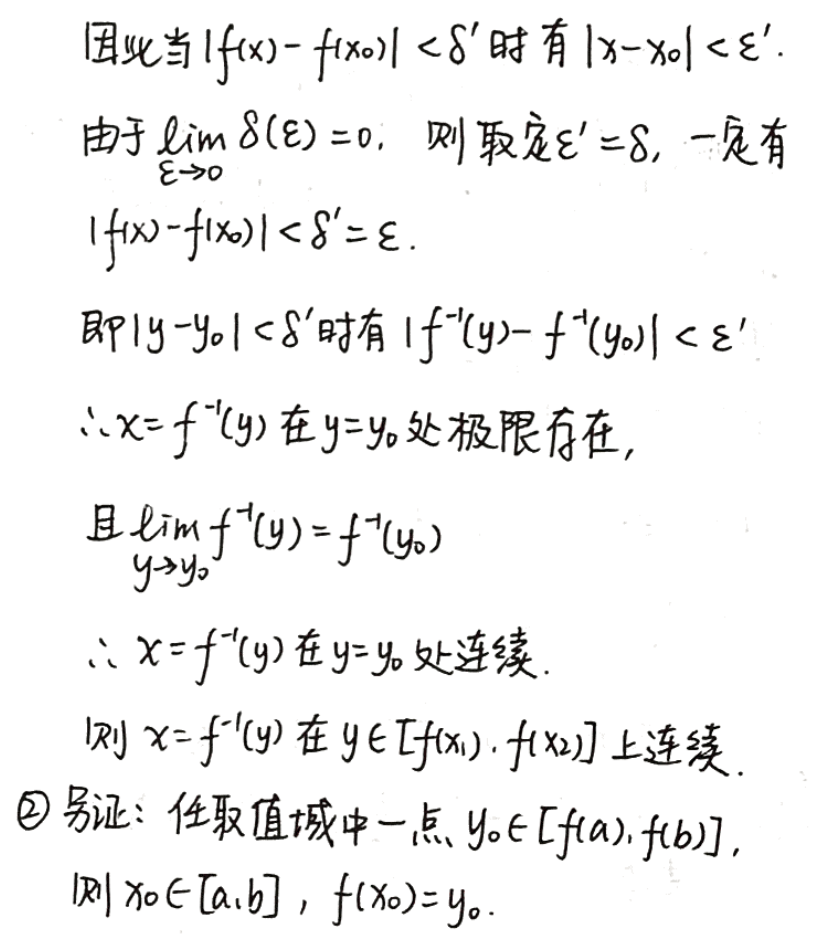 因此当|f(x)-f(x₀)|<δ′时有|x-x₀|<ε′.
由于lim δ(ε)=0, 则取定ε′=δ, 一定有
ε→0
|f(x)-f(x₀)|<δ′=ε.
即|y-y₀|<δ′时有|f⁻¹(y)-f⁻¹(y₀)|<ε′
∴x=f⁻¹(y)在y=y₀处极限存在,
且lim f⁻¹(y)=f⁻¹(y₀)
y→y₀
∴ x=f⁻¹(y)在y=y₀处连续.
则 x=f⁻¹(y)在y∈[f(x₁),f(x₂)]上连续.
② 另证: 任取值域中一点y₀∈[f(a),f(b)],
则x₀∈[a,b], f(x₀)=y₀.